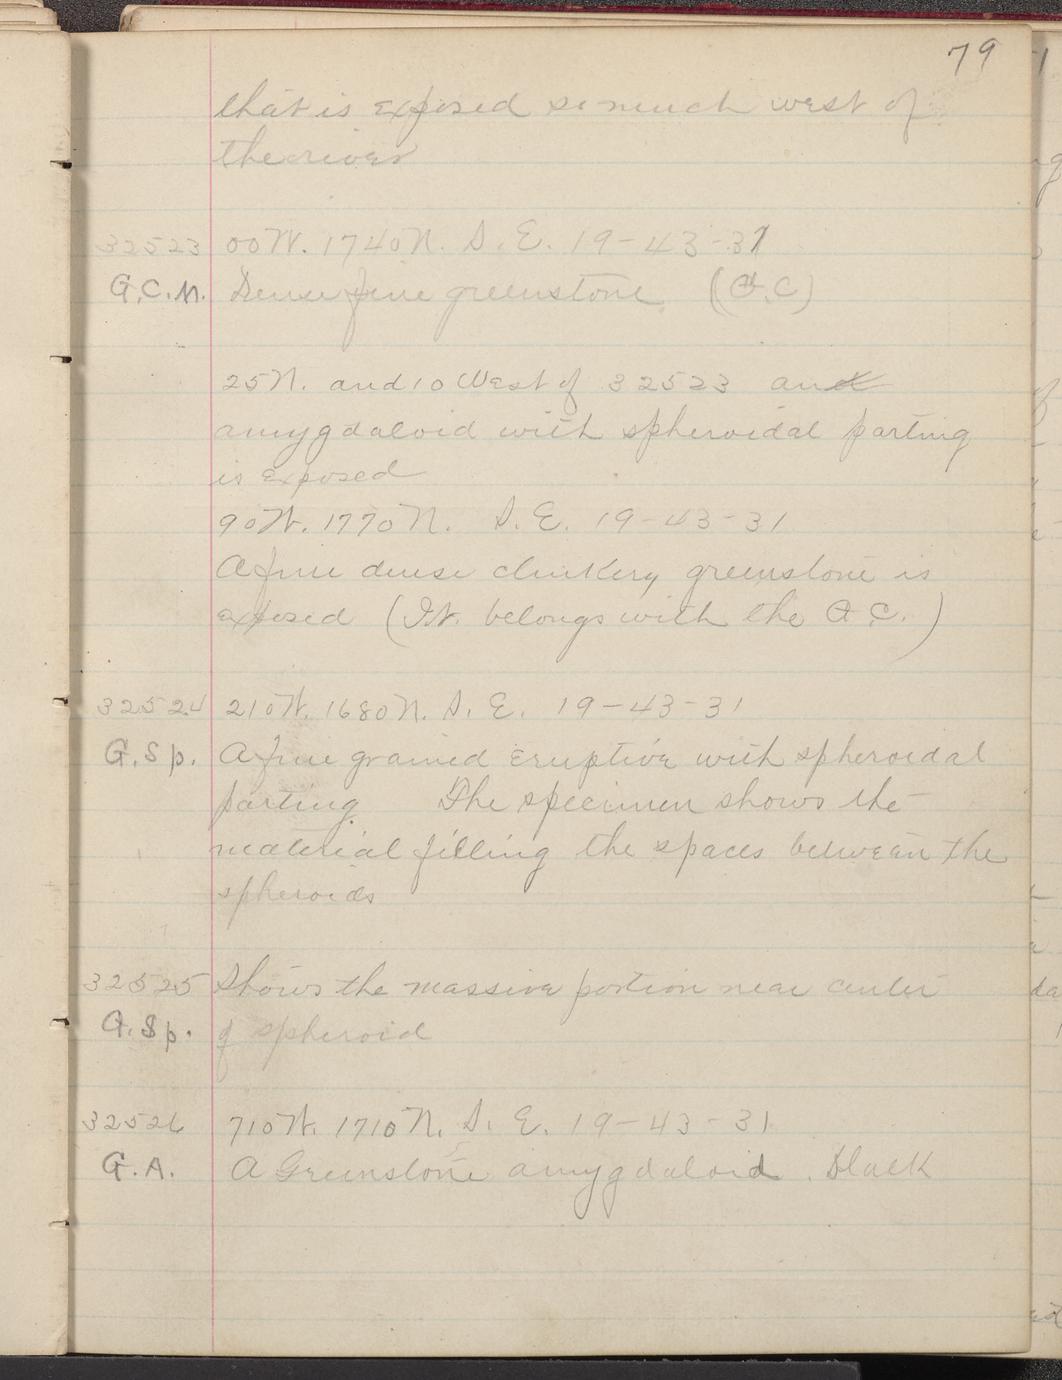 79
that is exposed so much west of
the river
32523 00W. 1740N. S.E. 19-43-31
G.C.M. Dense fine greenstone (G.C)
25N. and 10 West of 32523 an
amygdaloid with spheroidal parting
is exposed
90W. 1770N. S.E. 19-43-31
A fine dense clinkery greenstone is
exposed (It. belongs with the G.C.)
32524 210W. 1680N. S.E. 19-43-31
G.Sp. A fine grained eruptive with spheroidal
parting The specimen shows the
material filling the spaces between the
spheroids
32525 Shows the massive portion near center
G.Sp. of spheroid
32526 710W. 1710N. S.E. 19-43-31
G.A. A Greenstone amygdaloid. Black